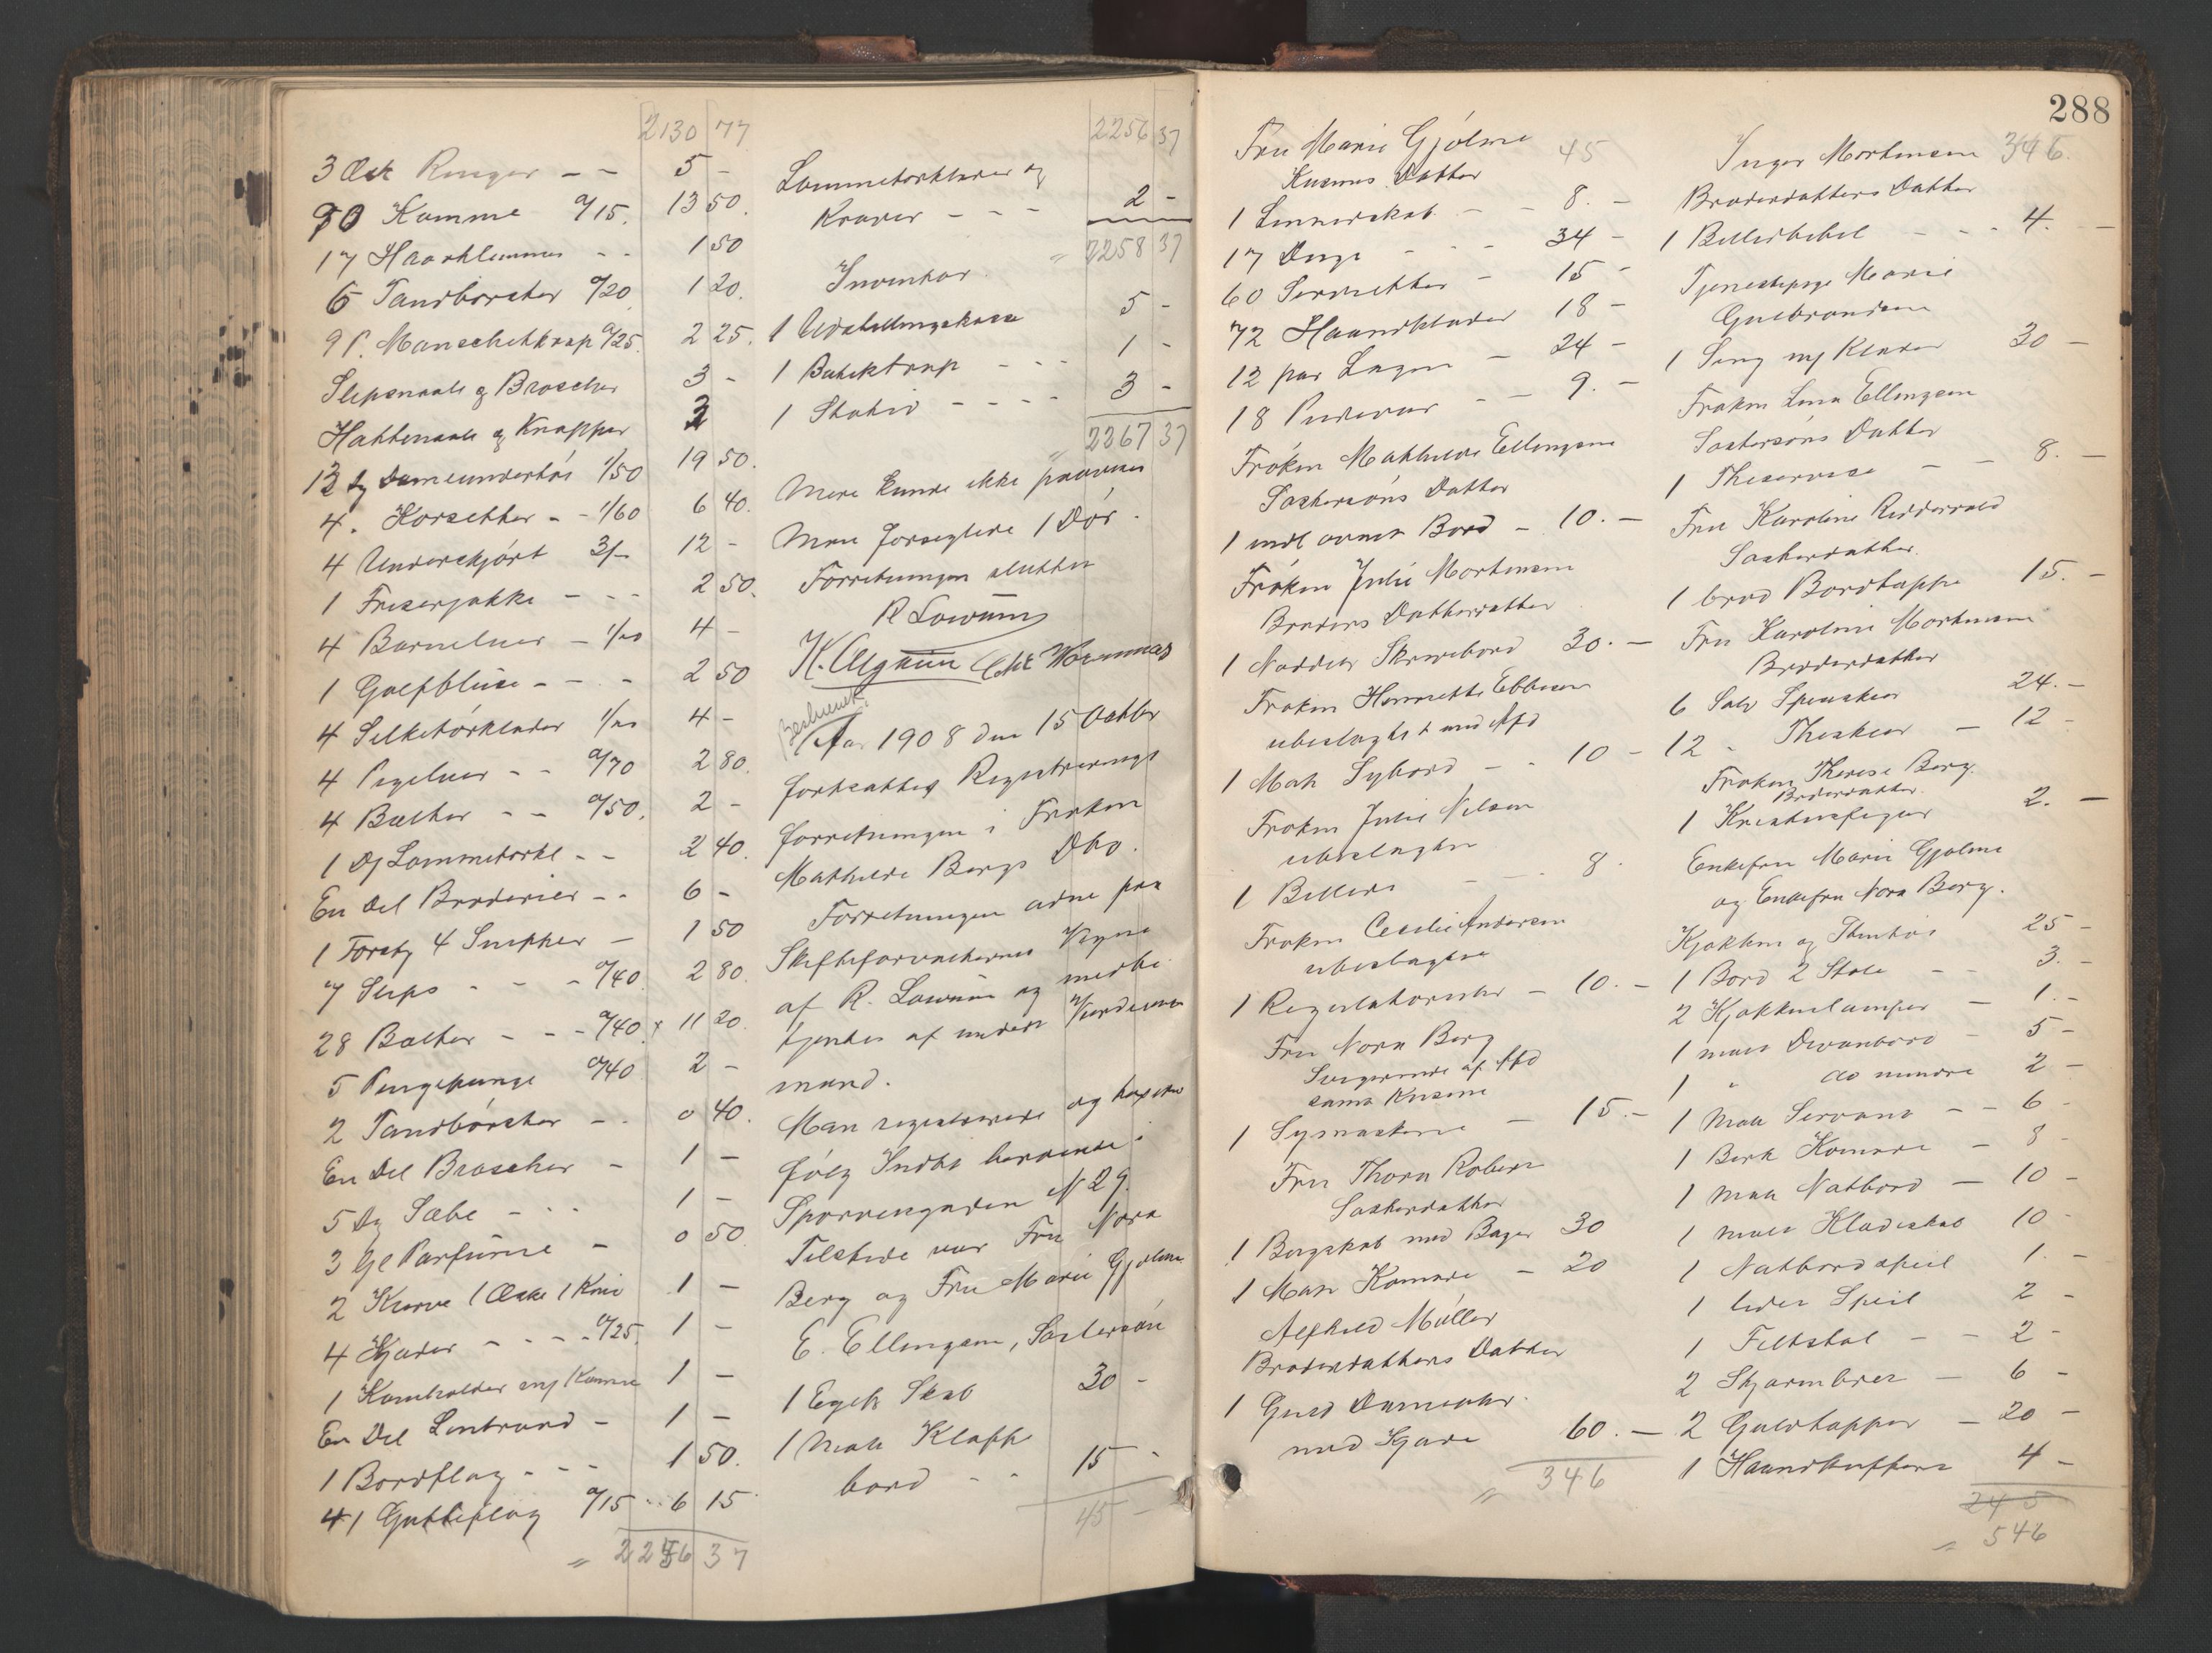 2130 77
3 Æsk Ringer - - 5 -
90 Kamme a/15. 13 50.
17 Haarklemmer - - 1 50
6 Tandbørster a/20 1 20.
9 P. Manschetknap a/25. 2 25.
Slipsnaale og Broscher 3 -
Hattenaale og Knapper 3
13 Dameundertøi 1/50 19 50.
4. Korsetter - - 1/60 6 40.
4 Underskjørt 3/- 12 -
1 Friserjakke - - - 2 50.
4 Barneluer - 1/00 4 -
1 Golfbluse - - - 2 50
4 Silketørklæder 1/00 4 -
4 Pigeluer - - a/70 2 80.
4 Bælter - - a/50. 2 -
1 Dz Lommetørkl - - 2 40.
En Del Broderier - - 6 -
1 Forsty 4 Snipper - 1 50
7 Slips - - - a/40 2 80.
28 Bælter - - - a/40 11 20.
5 Pengepunge a/40 2 -
2 Tandbørster - - 0 40.
En Del Broscher - 1 -
5 Dz Sæbe - - - 1 -
3 Gl Parfume - 0 50
2 Kurve 1 Æske 1 Kniv 1 -
4 Kjæder - - - a/25. 1 -
1 Kamholder m/ Kamme 1 -
En Del Lintraad - 1 -
1 Bordflag - - - 1 50.
41 Gutteflag a/15 - - 6 15
" 2256 37
2256 37
Lommetørklæder og
Kraver - - - 2 -
" 2258 37
Inventar.
1 Udstillingskasse 5 -
1 Butiktrap - - - 1 -
1 Stativ - - - - 3 -
" 2267 37
Mere kunde ikke paavises
Man forseglede 1 Dør.
Forretningen sluttet
R Lowum
Aar 1908 den 15 Oktbr
fortsattes Registrerings
forretningen i Frøken
Mathilde Bergs Dbo.
Forretningen adm paa
Skifteforvalterens Vegne
af R. Lowum og medbe
tjentes af undert Vurderings
mand.
Man registrerede og taxerte
følg Indbo beroende i
Sporveisgaden N 29.
Tilstede var Fru Nora
Berg og Fru Marie Gjølme
E. Ellingsen, Søstersøn
1 Egetr Skab 30 -
1 Mah Klapp
bord - - 15 -
45 -
288
Fru Marie Gjølme 45
Kusines Datter
1 Linnedskab - - 8. -
17 Duge - - - 34 -
60 Servietter - 15 -
72 Haandklæder 18 -
12 par Lagen - 24 -
18 Pudevar - - 9. -
Frøken Mathilde Ellingsen
Søstersøns Datter
1 indl ovalt Bord - 10. -
Frøken Julie Mortensen
Broders Datterdatter
1 Nøddetr Skrivebord 30. -
Frøken Henriette Ebbesen
ubeslægtet med Afd
1 Mah Sybord - - 10 -
Frøken Julie Nilsen
ubeslægtet
1 Billede - - - 8.
Frøken Cecilie Andersen
ubeslægtet
1 Regulatoruhr - 10. -
Fru Nora Berg
Svigerinde af Afd
samt Kusine
1 Symaskine - 15. -
Fru Thora Robern
Søsterdatter
1 Bogskab med Bøger 30
1 Mah Komode - 20
Alfhild Møller
Broderdatters Datter
1 Guld Dameuhr
med Kjæde 60. -
" 346
Inger Mortensen 346.
Broderdatters Datter
1 Billedbibel - - - 4. -
Tjenestepige Marie
Gulbrandsen
1 Seng m/ Klæder 30 -
Frøken Lina Ellingsen
Søstersøns Datter
1 Theservise - - 8. -
Fru Karoline Ridderwold
Søsterdatter.
1 brod Bordtæppe 15. -
Fru Karoline Mortensen
Broderdatter
6 Sølv Spiseskeer 24. -
12 " Theskeer - 12 -
Frøken Therese Berg.
Broderdatter.
1 Kristusfigur 2. -
Enkefru Marie Gjølme
og Enkefru Nora Berg.
Kjøkken og Thentøi 25 -
1 Bord 2 Stole - - 3. -
2 Kjøkkenlamper - 1. -
1 malt Divanbord - 5 -
1 " do mindre 2 -
1 Mah Servant - - 6 -
1 Birk Komode - 8 -
1 Mah Natbord - 10 -
1 malt Klædeskab 10 -
1 Natbordspeil 1. -
1 lidet Speil 2 -
1 Feltstol - - 2 -
2 Skjærmbret - 6 -
2 Guldtæpper - 20 -
1 Haandkuffert 4 -
245
" 546